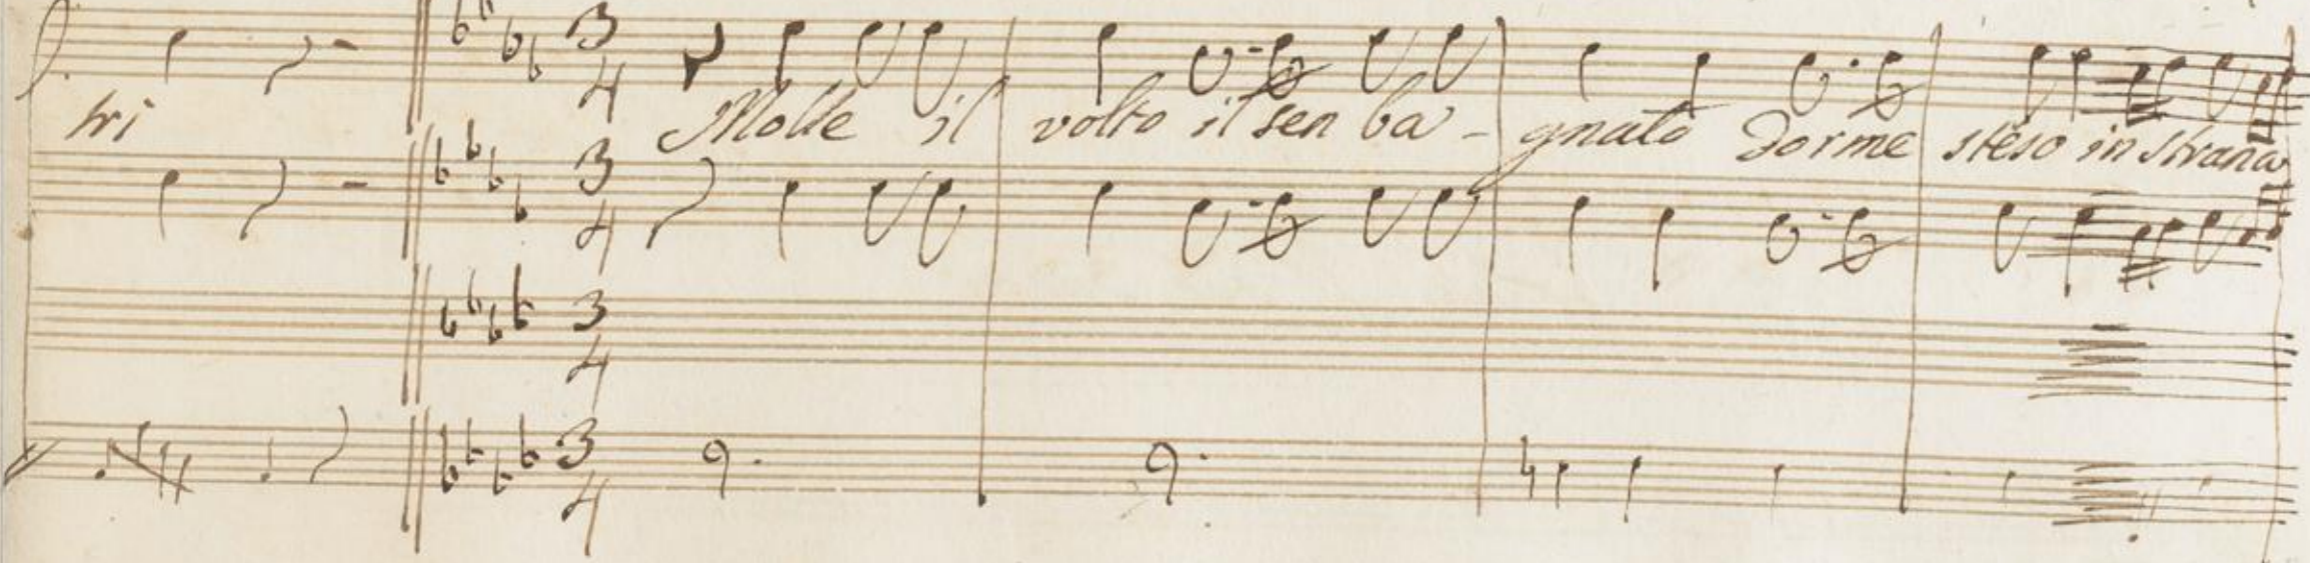 tri Molle il volto il sen ba - gnato Dorme steso in strana